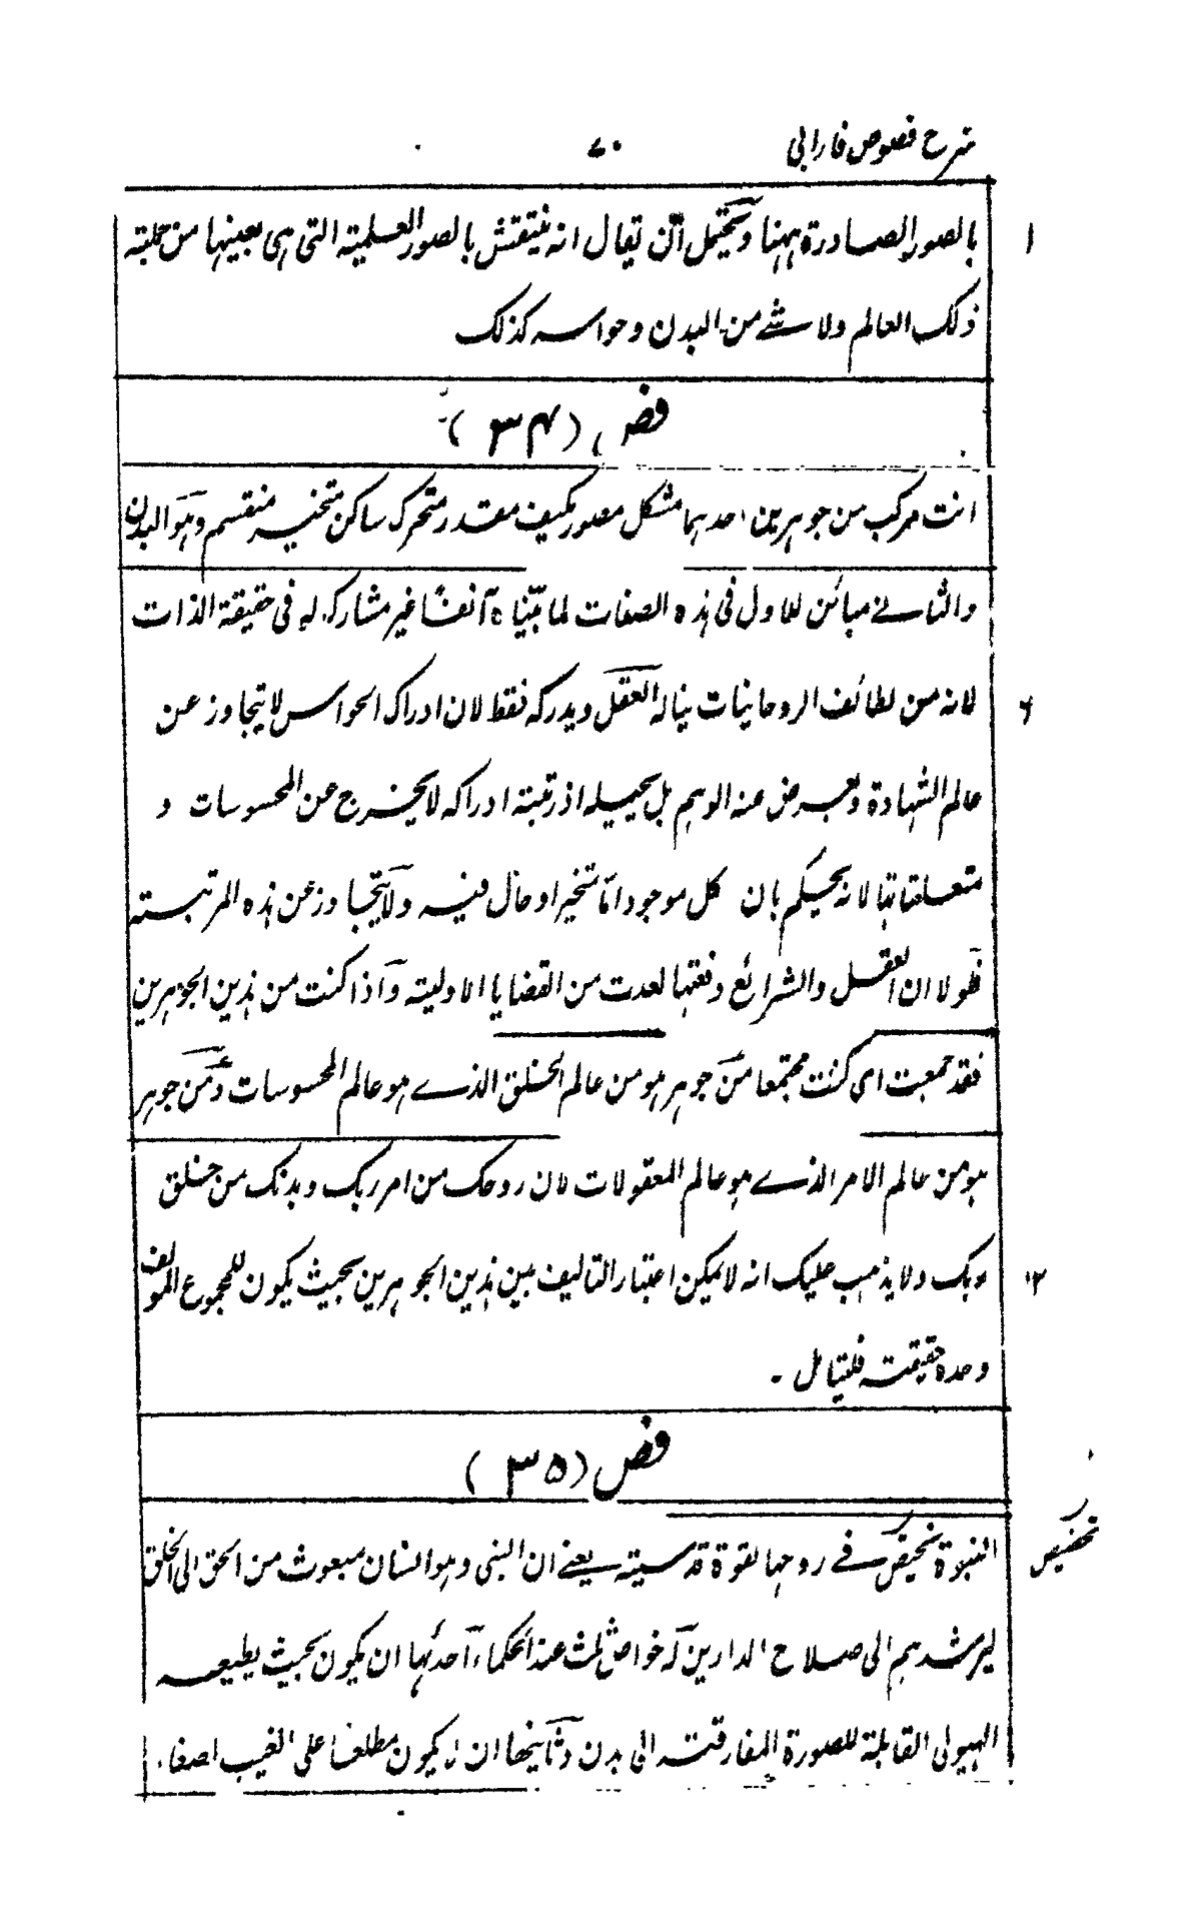 شرح فصوص فارابی ۷۰
۱ بالصور الصادرة ههنا ویحتمل ان یقال انه ینتقش بالصور العلمیة التی هی بعینها من جملة
ذلک العالم ولا شئ من البدن وحواسه کذلک
فص (۳۴)
انت مرکب من جوهرین احدهما مشکل مصور مکیف مقدر متحرک ساکن متحیز منقسم وهو البدن
والثانی مبائن للاول فی هذه الصفات لما بیناه آنفا غیر مشارک له فی حقیقة الذات
۶ لانه من لطائف الروحانیات یناله العقل ویدرکه فقط لان ادراک الحواس لا یتجاوز عن
عالم الشهادة ویعرض عنه الوهم بل یحیله اذ رتبة ادراکه لا یخرج عن المحسوسات و
متعلقاتها لانه یحکم بان کل موجود اما متحیز او حال فیه ولا یتجاوز عن هذه المرتبة
فلولا ان العقل والشرائع دفعتها لعدت من القضایا الاولیة واذا کنت من هذین الجوهرین
فقد جمعت ای کنت مجتمعا من جوهر هو من عالم الخلق الذی هو عالم المحسوسات ومن جوهر
هو من عالم الامر الذی هو عالم المعقولات لان روحک من امر ربک وبدنک من خلق
۱۲ ربک ولا یذهب علیک انه لا یمکن اعتبار التالیف بین هذین الجوهرین بحیث یکون للمجموع المولف
وحدة حقیقة فلیتامل ۔
فص (۳۵)
النبوة تختص فی روحها بقوة قدسیة یعنی ان النبی وهو انسان مبعوث من الحق الی الخلق
لیرشدهم الی صلاح الدارین له خواص ثلث عند الحکماء احدٰها ان یکون بحیث یطیعه
الهیولی القابلة للصورة المفارقة الی بدن وثانیها ان یکون مطلعا علی الغیب لصفاء